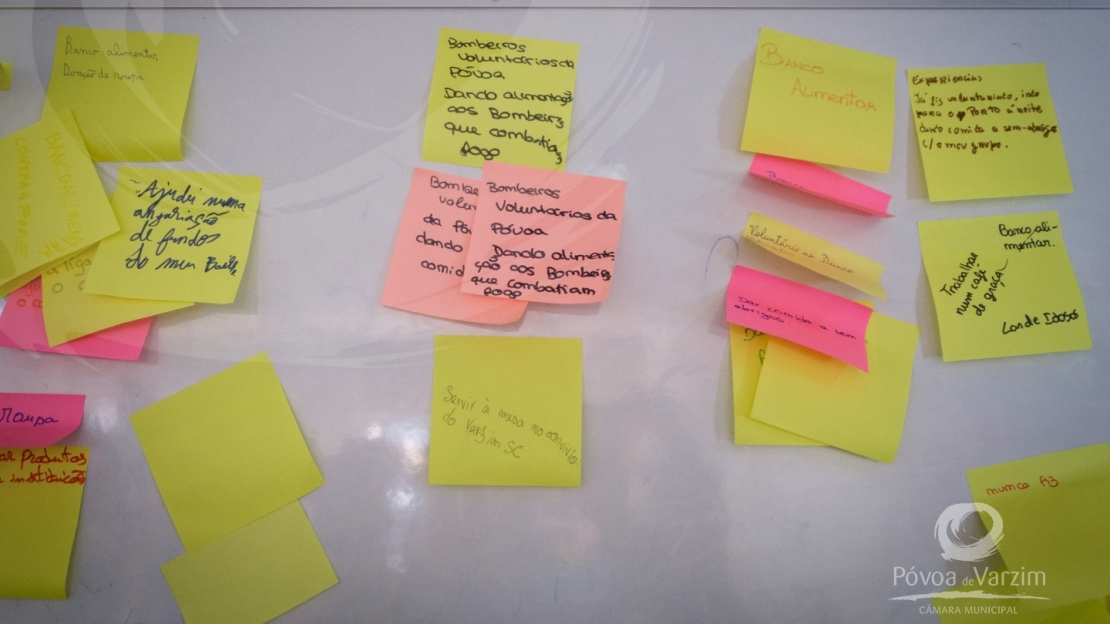 Banco alimentos
Doação de roupa
- Ajudei numa
angariação
de fundos
do meu
Roupa
ar produtos
instituição
Bombeiros
voluntários da
Póvoa
Dando alimentaçã
aos Bombeiros
que combatia
fogo
Bombe
volun
da Pó
dando
comid
Bombeiros
Voluntários da
Póvoa
Dando alimenta
ção aos Bombeiros
que combatiam
fogo
Servir à mesa no convívio
do Varzim SC
Banco
Alimentar
Banco
Voluntário no Banco
Dar comida a sem
abrigos.
Experiências
Já fiz voluntariado, indo
para o PORTO à noite
dando comida a sem-abrigo
c/ o meu grupo.
Banco ali-
mentar.
Trabalhar
num café
de graça
Lar de Idosos
nunca fiz
Póvoa de Varzim
CÂMARA MUNICIPAL